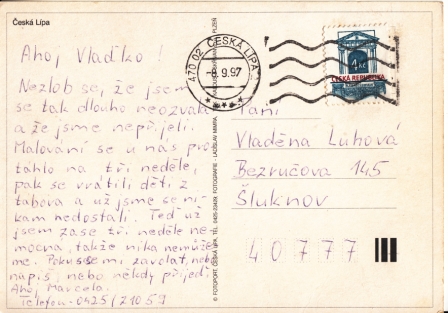 Česká Lípa
Ahoj Vlaďko!
Nezlob se, že jsem
se tak dlouho neozvala
a že jsme nepřijeli.
Malování se u nás pro
táhlo na tři neděle,
pak se vrátili děti z
tábora a už jsme se ni
kam nedostali. Teď už
jsem zase tři neděle ne
mocná, takže nika nemůže
me. Pokus se mi zavolat, nebo
napiš, nebo někdy přijeď.
Ahoj Marcela.
Telefon - 0425/21059
© FOTOPORT, ČESKÁ LÍPA, TEL. FOTOGRAFIE - LADISLAV
470 02 ČESKÁ LÍPA
-8.9.97
4 Kč
ČESKÁ REPUBLIKA
Paní
Vladěna Luhová
Bezručova 145
Šluknov
40777